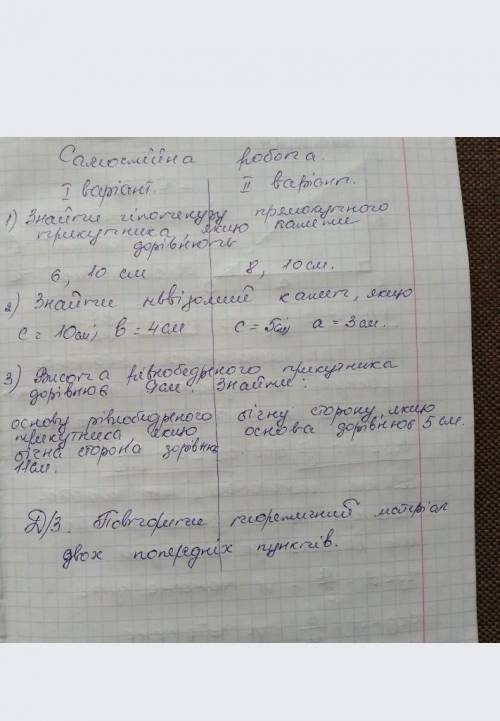 Самостійна робота.
I варіант. II варіант.
1) Знайти гіпотенузу прямокутного
трикутника, якщо катети
дорівнюють
6, 10 см 8, 10 см.
2) Знайти невідомий катет, якщо
c = 10 см; b = 4 см c = 5 см, a = 3 см.
3) Висота рівнобедреного трикутника
дорівнює 9 см. Знайти:
основу рівнобедреного бічну сторону, якщо
трикутника якщо основа дорівнює 5 см.
бічна сторона дорівнює
11 см.
Д/З. Повторити теоретичний матеріал
двох попередніх пунктів.